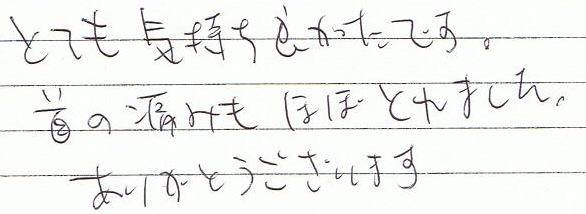 とても気持ち良かったです。
首の痛みもほぼとれました。
ありがとうございます